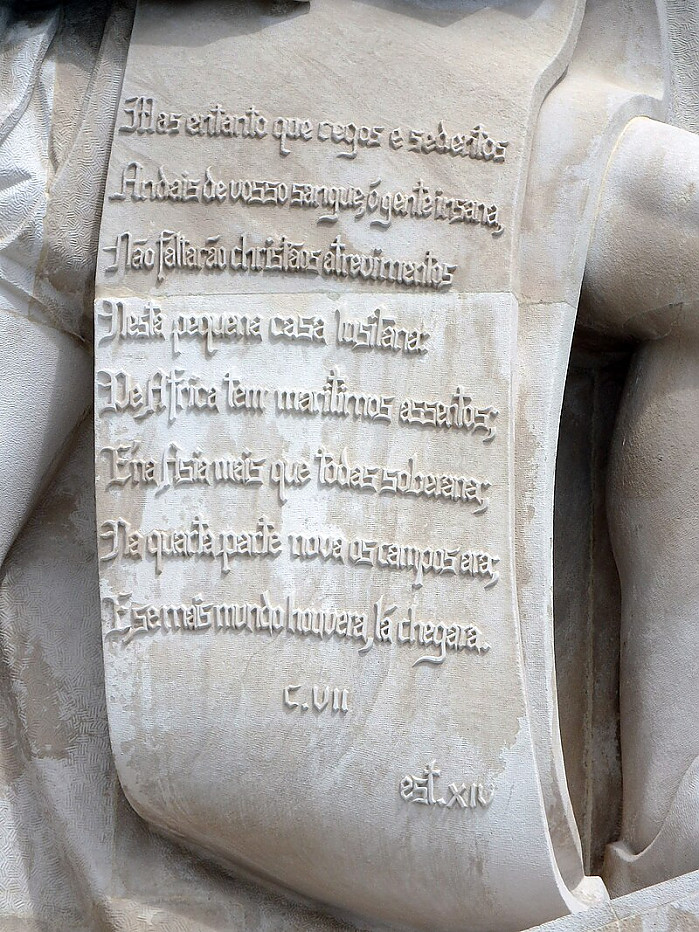 Mas entanto que cegos e sedentos
Andais de vosso sangue, ó gente insana,
Não faltarão christãos atrevimentos
Nesta pequena casa lusitana:
De Africa tem maritimos assentos;
E' na Asia mais que todas soberana;
Na quarta parte nova os campos ara;
E, se mais mundo houvera, lá chegara.
C. VII
est. XIV